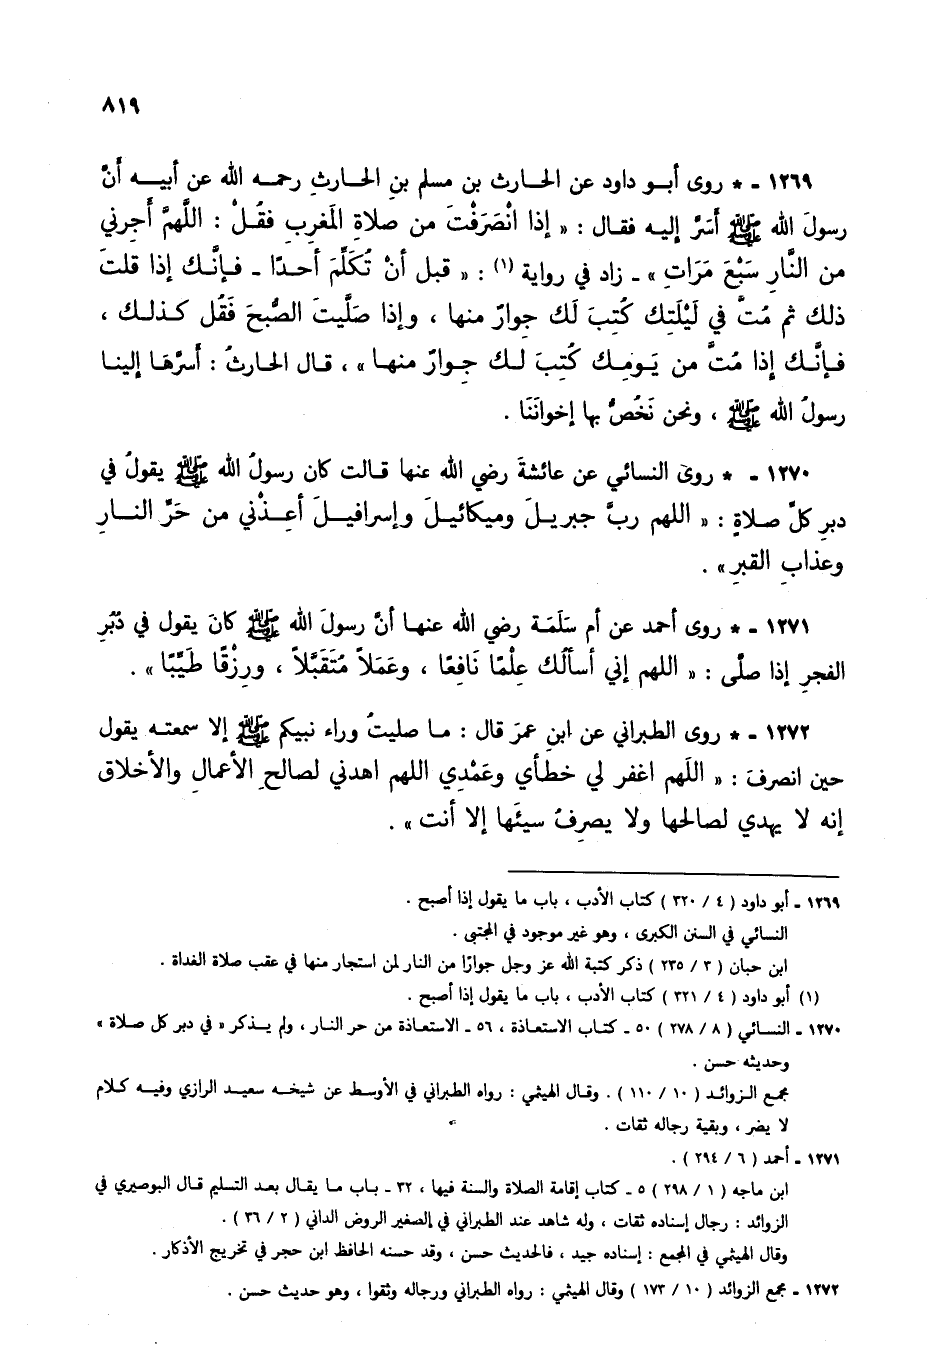 ٨١٩
١٢٦٩ - * روى أبو داود عن الحارث بن مسلم بنِ الحارثِ رحمه الله عن أبيه أنَّ
رسولَ الله ﷺ أَسَرَّ إليه فقال : « إذا انْصَرَفْتَ من صلاةِ المَغربِ فقُلْ : اللَّهمَّ أَجِرني
من النَّارِ سَبْعَ مَرَاتٍ » - زاد في رواية (١) : « قبل أنْ تُكَلِّمَ أحدًا - فإنَّك إذا قلتَ
ذلك ثم مُتَّ في لَيْلَتِك كُتِبَ لَك جوارٌ منها ، وإذا صَلَّيتَ الصُّبحَ فَقُل كذلك ،
فإنَّك إذا مُتَّ من يَومِك كُتِبَ لك جِوارٌ منها » ، قال الحارثُ : أسرَّهَا إلينا
رسولُ الله ﷺ ، ونحن نَخُصُّ بها إخوانَنَا .
١٢٧٠ - * روىَ النسائي عن عائشةَ رضي الله عنها قالت كان رسولُ الله ﷺ يقولُ في
دبرِ كلِّ صلاةٍ : « اللهم ربَّ جبريلَ وميكائيلَ وإسرافيلَ أعِذْني من حَرِّ النارِ
وعذابِ القبرِ » .
١٢٧١ - * روى أحمد عن أم سَلَمَة رضي الله عنها أنَّ رسولَ الله ﷺ كانَ يقول في دُبُرِ
الفجرِ إذا صلَّى : « اللهم إني أسألُك عِلْمًا نَافِعًا ، وعَمَلاً مُتَقَبَّلاً ، ورِزْقًا طَيِّبًا » .
١٢٧٢ - * روى الطبراني عن ابنِ عمرَ قال : ما صليتُ وراء نبيكم ﷺ إلا سمعته يقول
حين انصرفَ : « اللَهم اغفر لي خطأي وعَمْدي اللهم اهدني لصالحِ الأعمالِ والأخلاق
إنه لا يهدي لصالحها ولا يصرِفُ سيئَها إلا أنت » .
١٢٦٩ - أبو داود ( ٤ / ٣٢٠ ) كتاب الأدب ، باب ما يقول إذا أصبح .
النسائي في السنن الكبرى ، وهو غير موجود في المجتبى .
ابن حبان ( ٣ / ٢٣٥ ) ذكر كتبة الله عز وجل جوارًا من النار لمن استجار منها في عقب صلاة الغداة .
(١) أبو داود ( ٤ / ٣٢١ ) كتاب الأدب ، باب ما يقول إذا أصبح .
١٢٧٠ - النسائي ( ٨ / ٢٧٨ ) ٥٠ - كتاب الاستعاذة ، ٥٦ - الاستعاذة من حر النار ، ولم يذكر « في دبر كل صلاة »
وحديثه حسن .
مجمع الزوائد ( ١٠ / ١١٠ ) . وقال الهيثمي : رواه الطبراني في الأوسط عن شيخه سعيد الرازي وفيه كلام
لا يضر ، وبقية رجاله ثقات .
١٢٧١ - أحمد ( ٦ / ٢٩٤ ) .
ابن ماجه ( ١ / ٢٩٨ ) ٥ - كتاب إقامة الصلاة والسنة فيها ، ٣٢ - باب ما يقال بعد التسليم قال البوصيري في
الزوائد : رجال إسناده ثقات ، وله شاهد عند الطبراني في الصغير الروض الداني ( ٢ / ٣٦ ) .
وقال الهيثمي في المجمع : إسناده جيد ، فالحديث حسن ، وقد حسنه الحافظ ابن حجر في تخريج الأذكار .
١٢٧٢ - مجمع الزوائد ( ١٠ / ١٧٣ ) وقال الهيثمي : رواه الطبراني ورجاله وثقوا ، وهو حديث حسن .